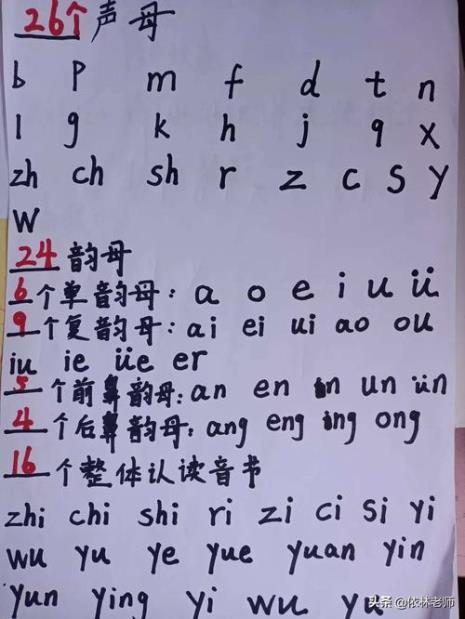 26个声母
b p m f d t n
l g k h j q x
zh ch sh r z c s y
w
24韵母
6个单韵母：a o e i u ü
9个复韵母：ai ei ui ao ou
iu ie üe er
5个前鼻韵母：an en in un ün
4个后鼻韵母：ang eng ing ong
16个整体认读音节
zhi chi shi ri zi ci si yi
wu yu ye yue yuan yin
yun ying yi wu yu
头条 @依林老师